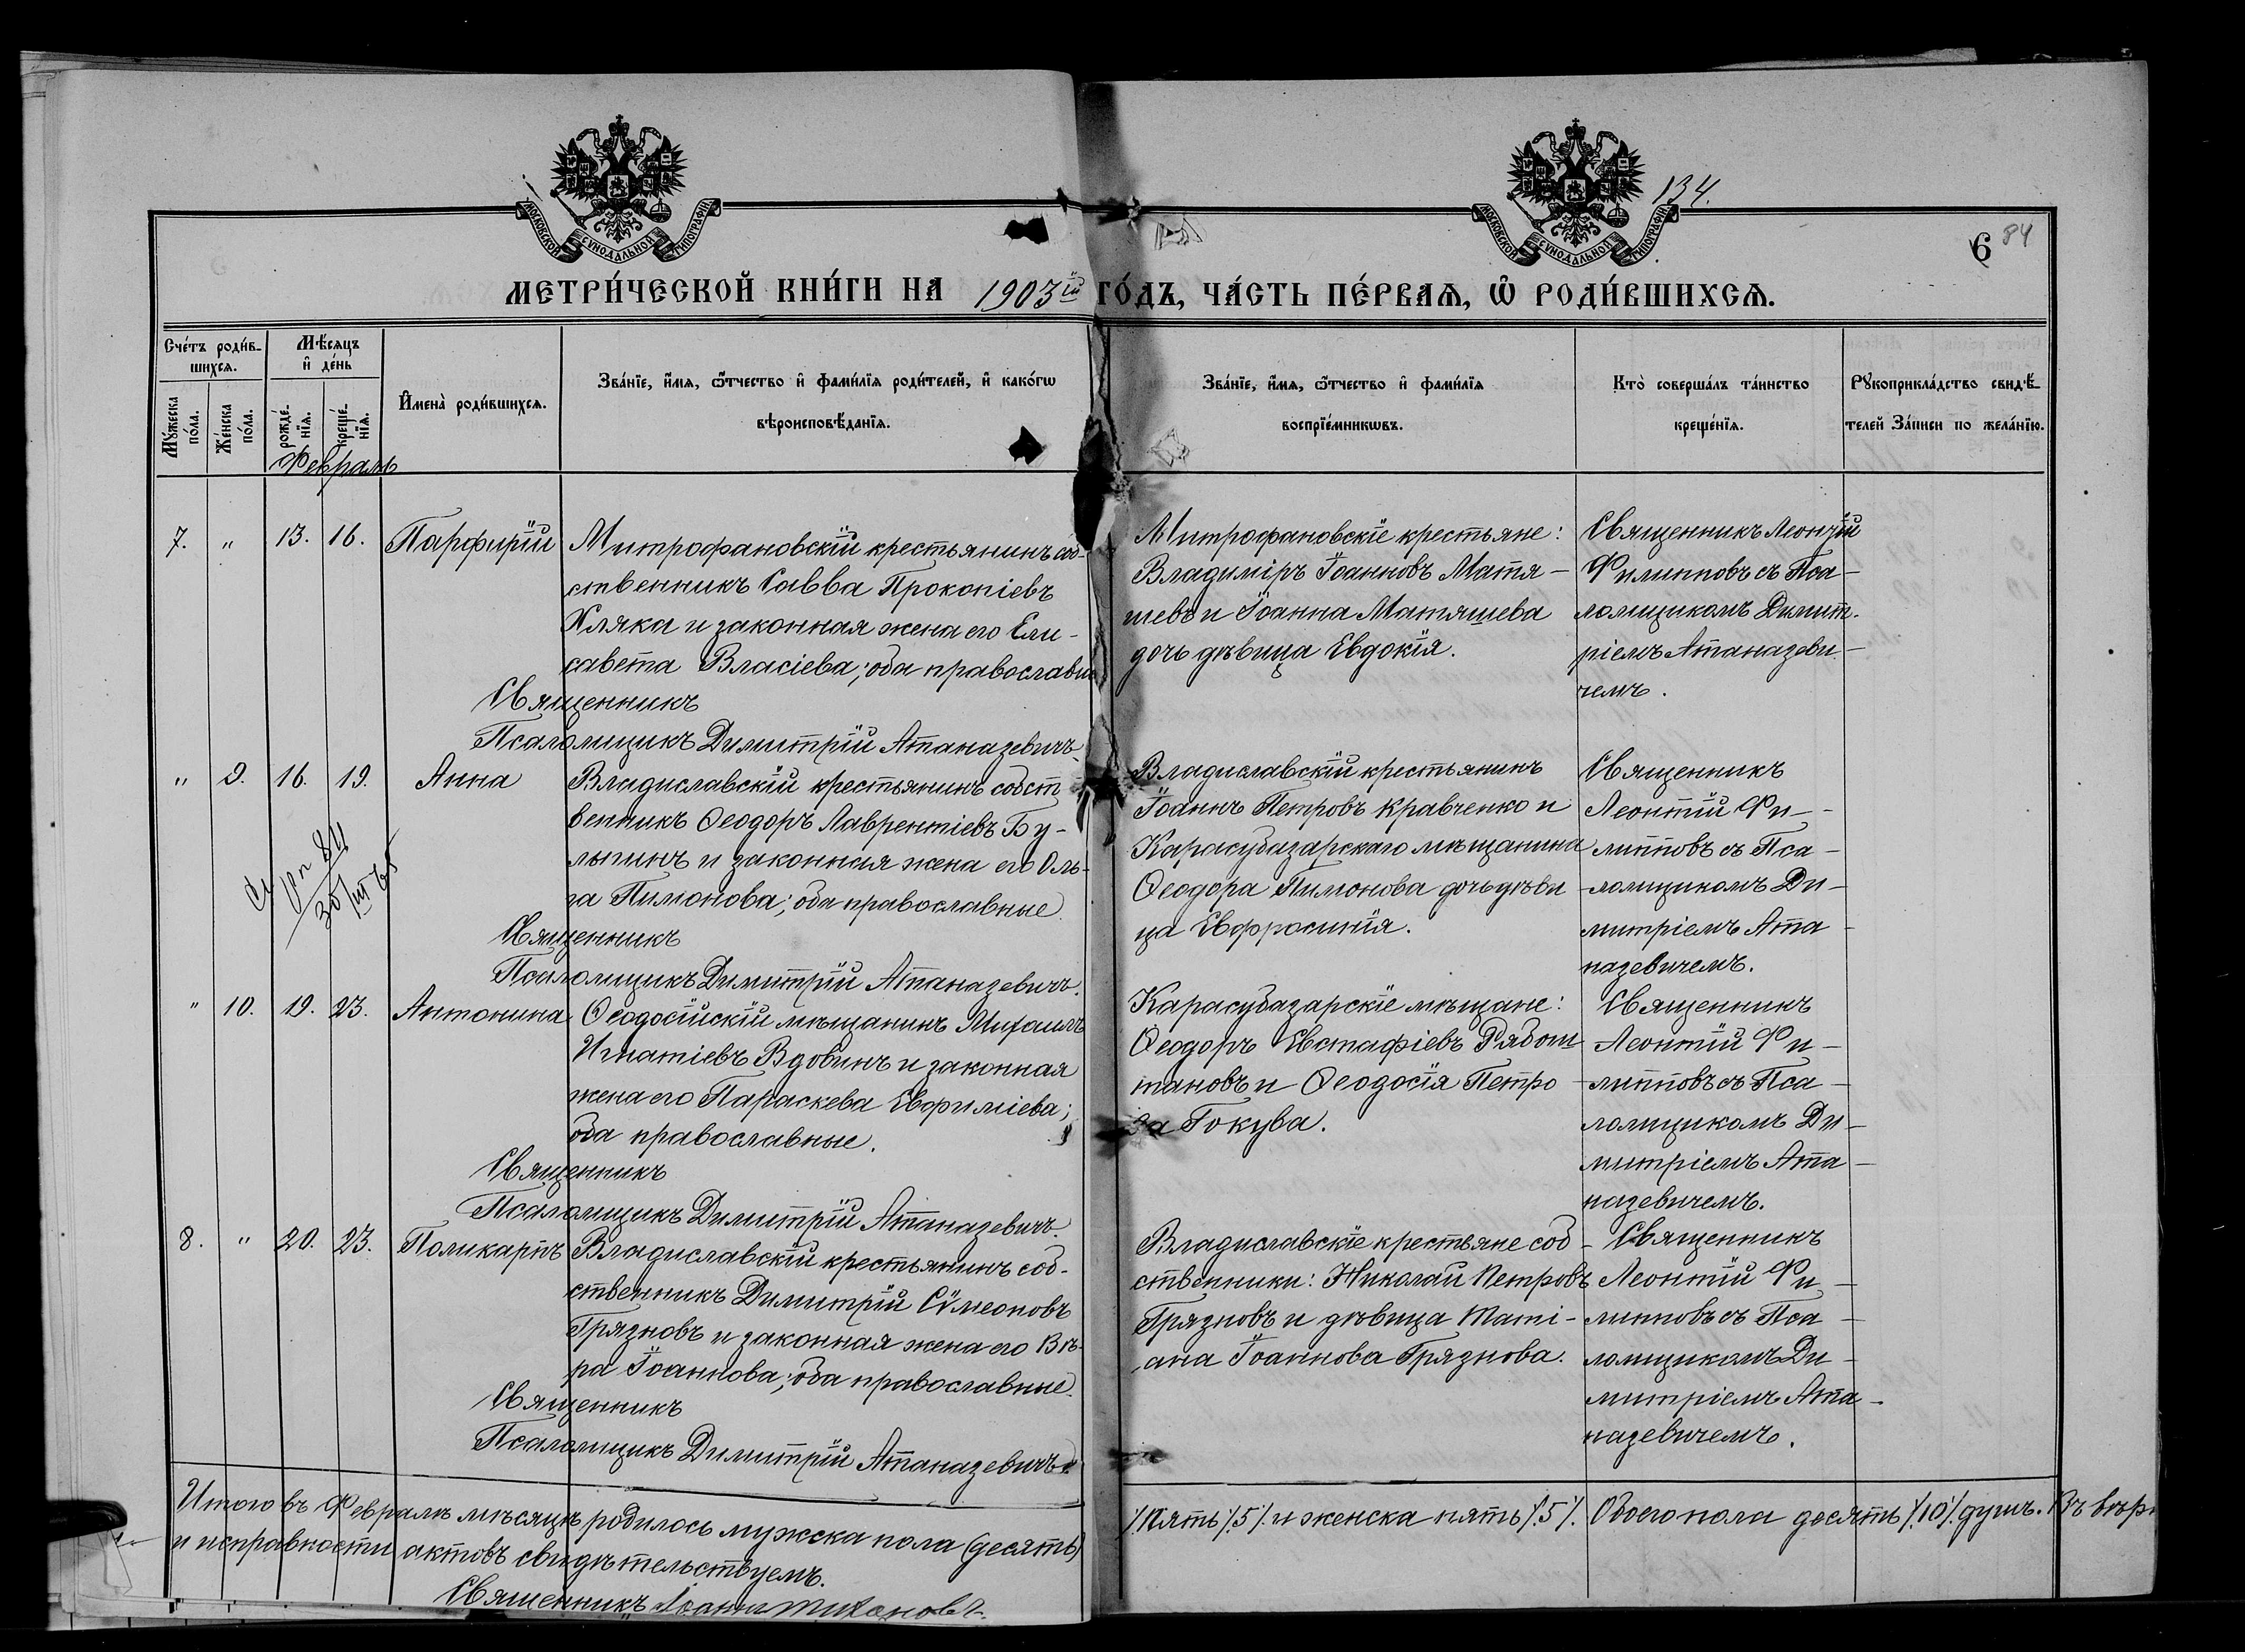 134.
6 84
МОСКОВСКОЙ СѴНОДАЛЬНОЙ ТИПОГРАФІИ
МОСКОВСКОЙ СѴНОДАЛЬНОЙ ТИПОГРАФІИ
МЕТРИ́ЧЕСКОЙ КНИ́ГИ НА 1903й ГО́ДЪ, ЧА́СТЬ ПЕ́РВАѦ, Ѡ҆ РОДИ́ВШИХСѦ.
Сче́тъ роди́в-
шихсѧ.
Мꙋ́жеска по́ла.
Же́нска по́ла.
Мѣ́сяцъ
и҆ де́нь
рожде́-
нїѧ.
креще́-
нїѧ.
Февраль
И҆мена̀ роди́вшихсѧ.
Зва́нїе, и҆́мѧ, ѻ҆́тчество и҆ фами́лїѧ роди́телей, и҆ како́гѡ
вѣроисповѣ́данїѧ.
Зва́нїе, и҆́мѧ, ѻ҆́тчество и҆ фами́лїѧ
воспрїе́мникѡвъ.
Кто̀ соверша́лъ та́инство
креще́нїѧ.
Рꙋкоприкла́дство свидѣ́-
телей За́писи по жела́нїю.
7. " 13. 16. Парфирій
Митрофановскій крестьянинъ соб-
ственникъ Савва Прокопіевъ
Хляка и законная жена его Ели-
савета Власіева; оба православн
Священникъ
Псаломщикъ Димитрій Атаназевичъ
Митрофановскіе крестьяне:
Владиміръ Іоанновъ Матя-
шевъ и Іоанна Матяшева
дочь дѣвица Евдокія.
Священникъ Леонтій
Филипповъ съ Пса-
ломщикомъ Димит-
ріемъ Атаназеви-
чемъ.
" 9. 16. 19. Анна
Владиславскій крестьянинъ собст
венникъ Ѳеодоръ Лаврентіевъ Бу-
лыгинъ и законная жена его Оль-
га Пимонова; оба православные.
Священникъ
Псаломщикъ Димитрій Атаназевичъ.
Владиславскій крестьянинъ
Іоаннъ Петровъ Кравченко и
Карасубазарскаго мѣщанина
Ѳеодора Пимонова дочь дѣви
ца Евфросинія.
Священникъ
Леонтій Фи-
липповъ съ Пса-
ломщикомъ Ди-
митріемъ Ата-
назевичемъ.
" 10. 19. 23. Антонина
Ѳеодосійскій мѣщанинъ Михаилъ
Игнатіевъ Вдовинъ и законная
жена его Параскева Евфиміева;
оба православные.
Священникъ
Псаломщикъ Димитрій Атаназевичъ.
Карасубазарскіе мѣщане:
Ѳеодоръ Евстафіевъ Рябош
тановъ и Ѳеодосія Петро-
ва Гокува.
Священникъ
Леонтій Фи-
липповъ съ Пса-
ломщикомъ Ди-
митріемъ Ата-
назевичемъ.
8. " 20. 23. Поликарпъ
Владиславскій крестьянинъ соб-
ственникъ Димитрій Сѵмеоновъ
Грязновъ и законная жена его Вѣ-
ра Іоаннова; оба православные.
Священникъ
Псаломщикъ Димитрій Атаназевичъ.
Владиславскіе крестьяне соб-
ственники: Николай Петровъ
Грязновъ и дѣвица Таті-
ана Іоаннова Грязнова.
Священникъ
Леонтій Фи-
липповъ съ Пса-
ломщикомъ Ди-
митріемъ Ата-
назевичемъ.
Итого въ Февралѣ мѣсяцѣ родилось мужска пола (десять) /Пять/.5/. и женска пять/.5/. Обоего пола десять/.10/. душъ. Въ вѣр
и исправности актовъ свидѣтельствуемъ.
Священникъ Іоаннъ Тихоновъ.